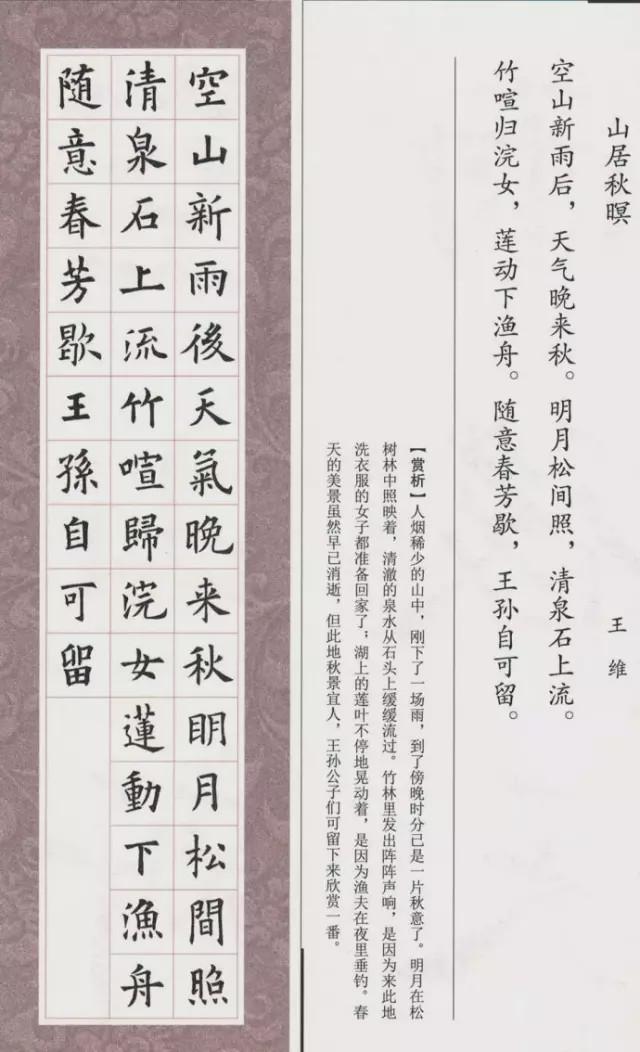 山居秋暝
王维
空山新雨后，天气晚来秋。明月松间照，清泉石上流。
竹喧归浣女，莲动下渔舟。随意春芳歇，王孙自可留。
【赏析】人烟稀少的山中，刚下了一场雨，到了傍晚时分已是一片秋意了。明月在松
树林中照映着，清澈的泉水从石头上缓缓流过。竹林里发出阵阵声响，是因为来此地
洗衣服的女子都准备回家了；湖上的莲叶不停地晃动着，是因为渔夫在夜里垂钓。春
天的美景虽然早已消逝，但此地秋景宜人，王孙公子们可留下来欣赏一番。
空山新雨後天氣晚来秋眀月松間照
清泉石上流竹喧歸浣女蓮動下漁舟
随意春芳歇王孫自可留